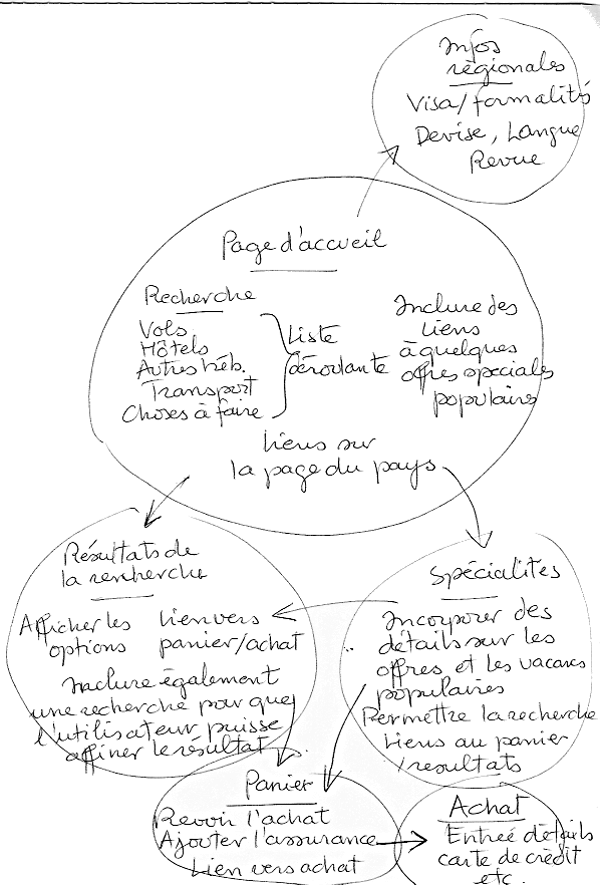 Infos
régionales
Visa/formalités
Devise, Langue
Revue
Page d'accueil
Recherche
Vols
Hôtels
Autres héb.
Transport
Choses à faire
Liste
déroulante
Inclure des
liens
à quelques
offres speciales
populaires
Liens sur
la page du pays
Résultats de
la recherche
Afficher les
options
Lien vers
panier/achat
Inclure également
une recherche pour que
l'utilisateur puisse
affiner le resultat
Spécialités
Incorporer des
détails sur les
offres et les vacances
populaires
Permettre la recherche
Liens au panier
/resultats
Panier
Revoir l'achat
Ajouter l'assurance
Lien vers achat
Achat
Entreé détails
carte de crèdit
etc.